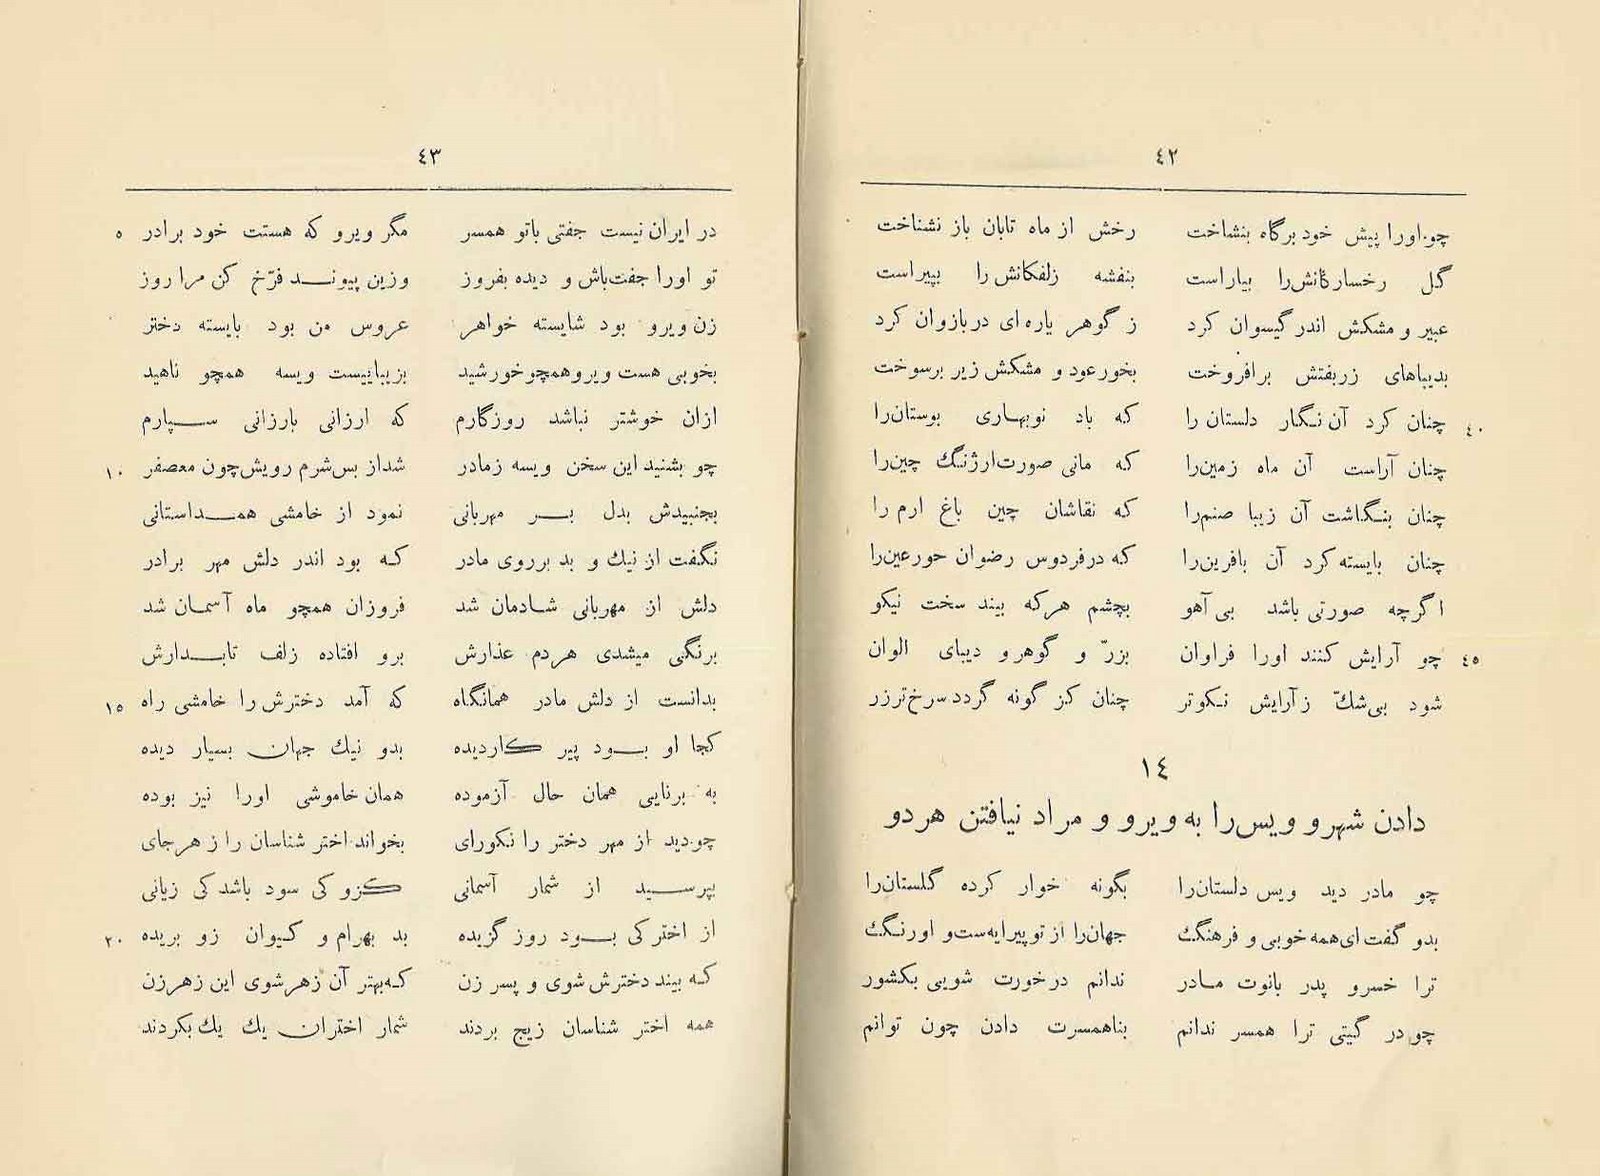 ٤٢
چو اورا پیش خود برگاه بنشاخت رخش از ماه تابان باز نشناخت
گل رخسارگانش‌را بیاراست بنفشه زلفکانش را بپیراست
عبیر و مشکش اندر گیسوان کرد ز گوهر یاره ای در بازوان کرد
بدیباهای زربفتش برافروخت بخور عود و مشکش زیر برسوخت
چنان کرد آن نگار دلستان را که باد نوبهاری بوستان‌را ٤٠
چنان آراست آن ماه زمین‌را که مانی صورت ارژنگ چین‌را
چنان بنگاشت آن زیبا صنم‌را که نقاشان چین باغ ارم را
چنان بایسته کرد آن بافرین‌را که در فردوس رضوان حورعین‌را
اگرچه صورتی باشد بی آهو بچشم هرکه بیند سخت نیکو
چو آرایش کنند اورا فراوان بزرّ و گوهر و دیبای الوان ٤٥
شود بی‌شكّ ز آرایش نکوتر چنان کز گونه گردد سرخ‌تر زر
١٤
دادن شهرو ویس‌را به ویرو و مراد نیافتن هردو
چو مادر دید ویس دلستان‌را بگونه خوار کرده گلستان‌را
بدو گفت ای همه خوبی و فرهنگ جهان‌را از تو پیرایه‌ست و اورنگ
ترا خسرو پدر بانوت مادر ندانم درخورت شویی بکشور
چو در گیتی ترا همسر ندانم بناهمسرت دادن چون توانم
٤٣
در ایران نیست جفتی باتو همسر مگر ویرو که هستت خود برادر ٥
تو اورا جفت‌باش و دیده بفروز وزین پیوند فرّخ کن مرا روز
زن ویرو بود شایسته خواهر عروس من بود بایسته دختر
بخوبی هست ویرو همچو خورشید بزیبایست ویسه همچو ناهید
ازان خوشتر نباشد روزگارم که ارزانی بارزانی سپارم
چو بشنید این سخن ویسه ز مادر شد از بس شرم رویش چون معصفر ١٠
بجنبیدش بدل بر مهربانی نمود از خامشی همداستانی
نگفت از نیك و بد بر روی مادر که بود اندر دلش مهر برادر
دلش از مهربانی شادمان شد فروزان همچو ماه آسمان شد
برنگی میشدی هردم عذارش برو افتاده زلف تابدارش
بدانست از دلش مادر همانگاه که آمد دخترش را خامشی راه ١٥
کجا او بود پیر کاردیده بدو نیك جهان بسیار دیده
به برنایی همان حال آزموده همان خاموشی اورا نیز بوده
چو دید از مهر دختر را نکورای بخواند اختر شناسان را ز هر جای
بپرسید از شمار آسمانی کزو کی سود باشد کی زیانی
از اختر کی بود روز گزیده بد بهرام و کیوان زو بریده ٢٠
که بیند دخترش شوی و پسر زن که بهتر آن ز هر شوی این ز هر زن
همه اختر شناسان زیج بردند شمار اختران یك یك بکردند